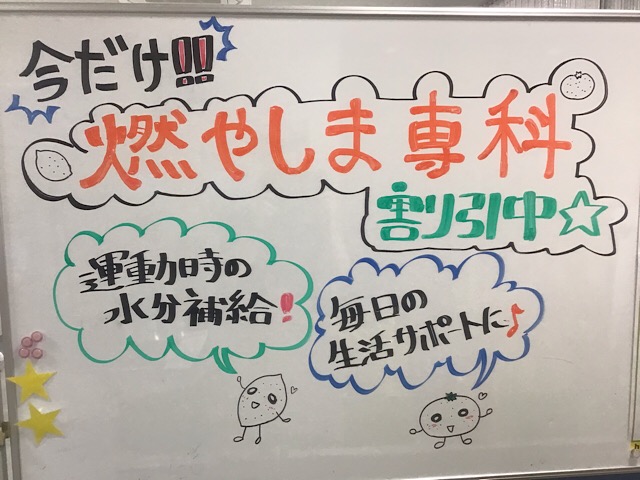 今だけ!!
燃やしま専科
割り引中☆
運動時の
水分補給!
毎日の
生活サポートに♪